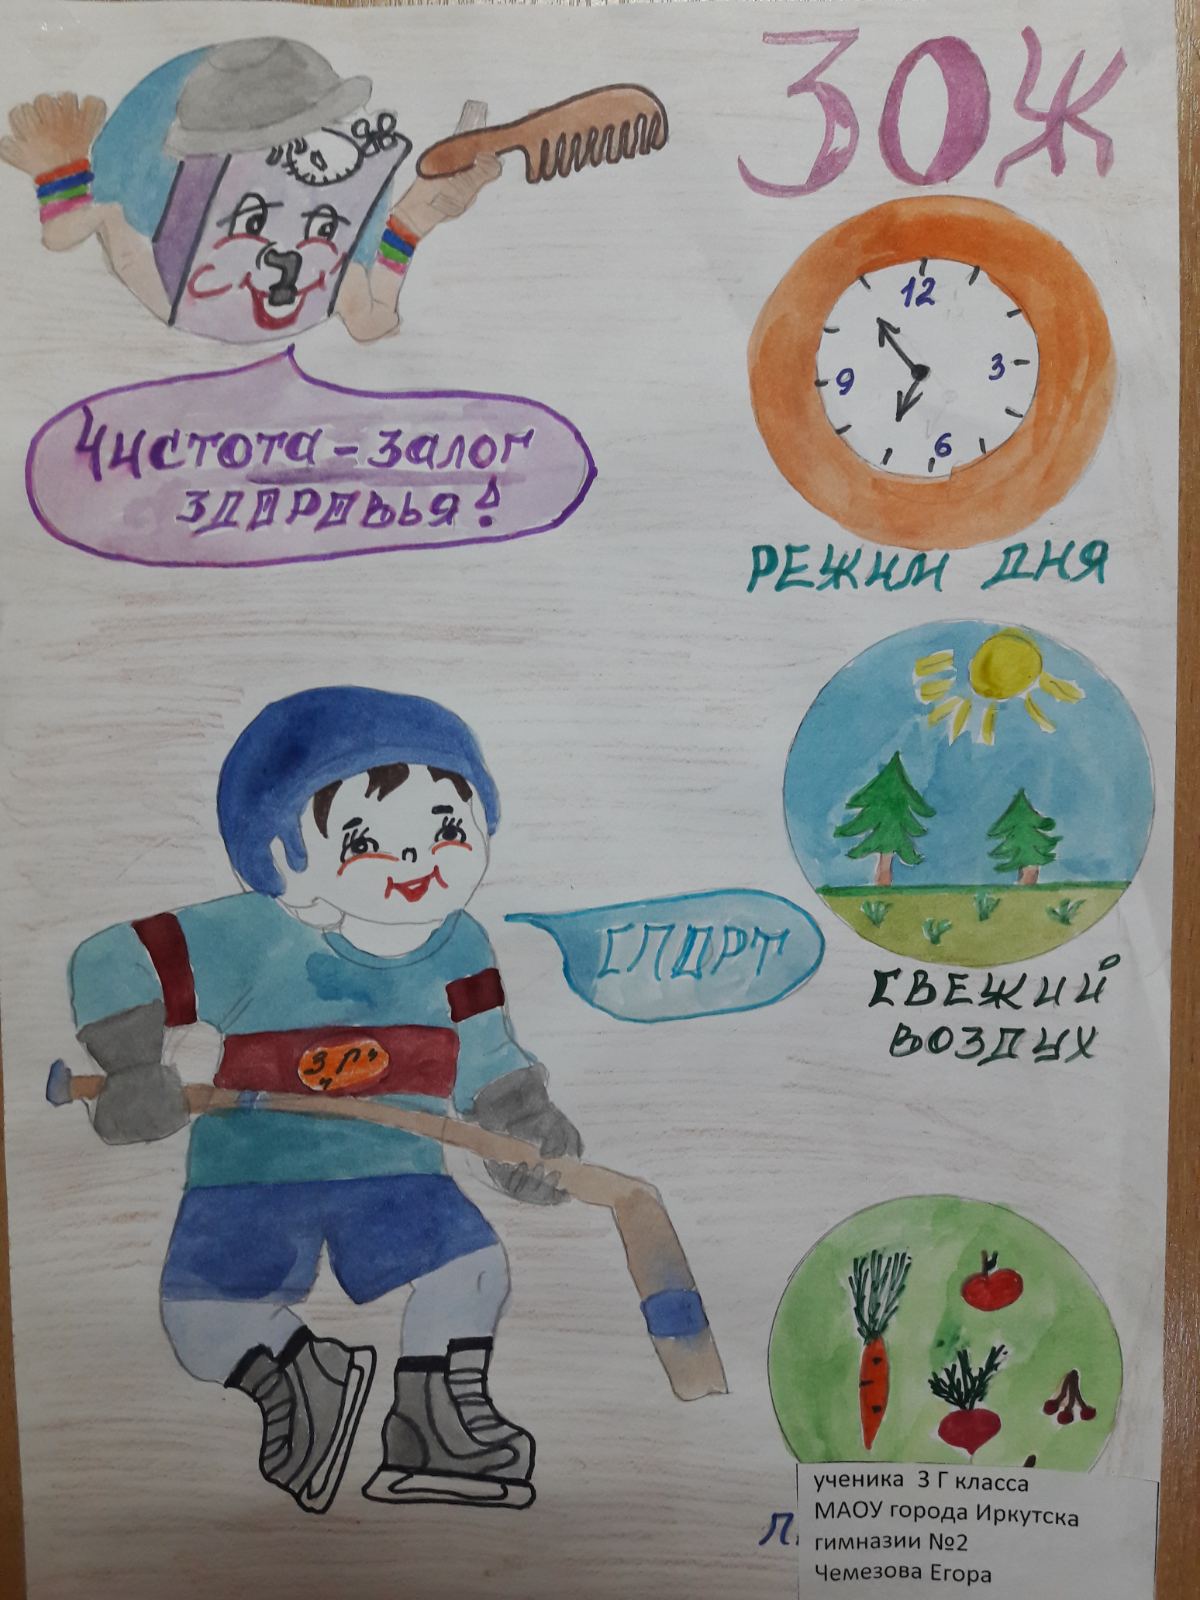 ЗОЖ
12
3
9
6
Чистота - залог
здоровья!
РЕЖИМ ДНЯ
СПОРТ
СВЕЖИЙ
ВОЗДУХ
"3 Г"
ученика 3 Г класса
МАОУ города Иркутска
гимназии №2
Чемезова Егора